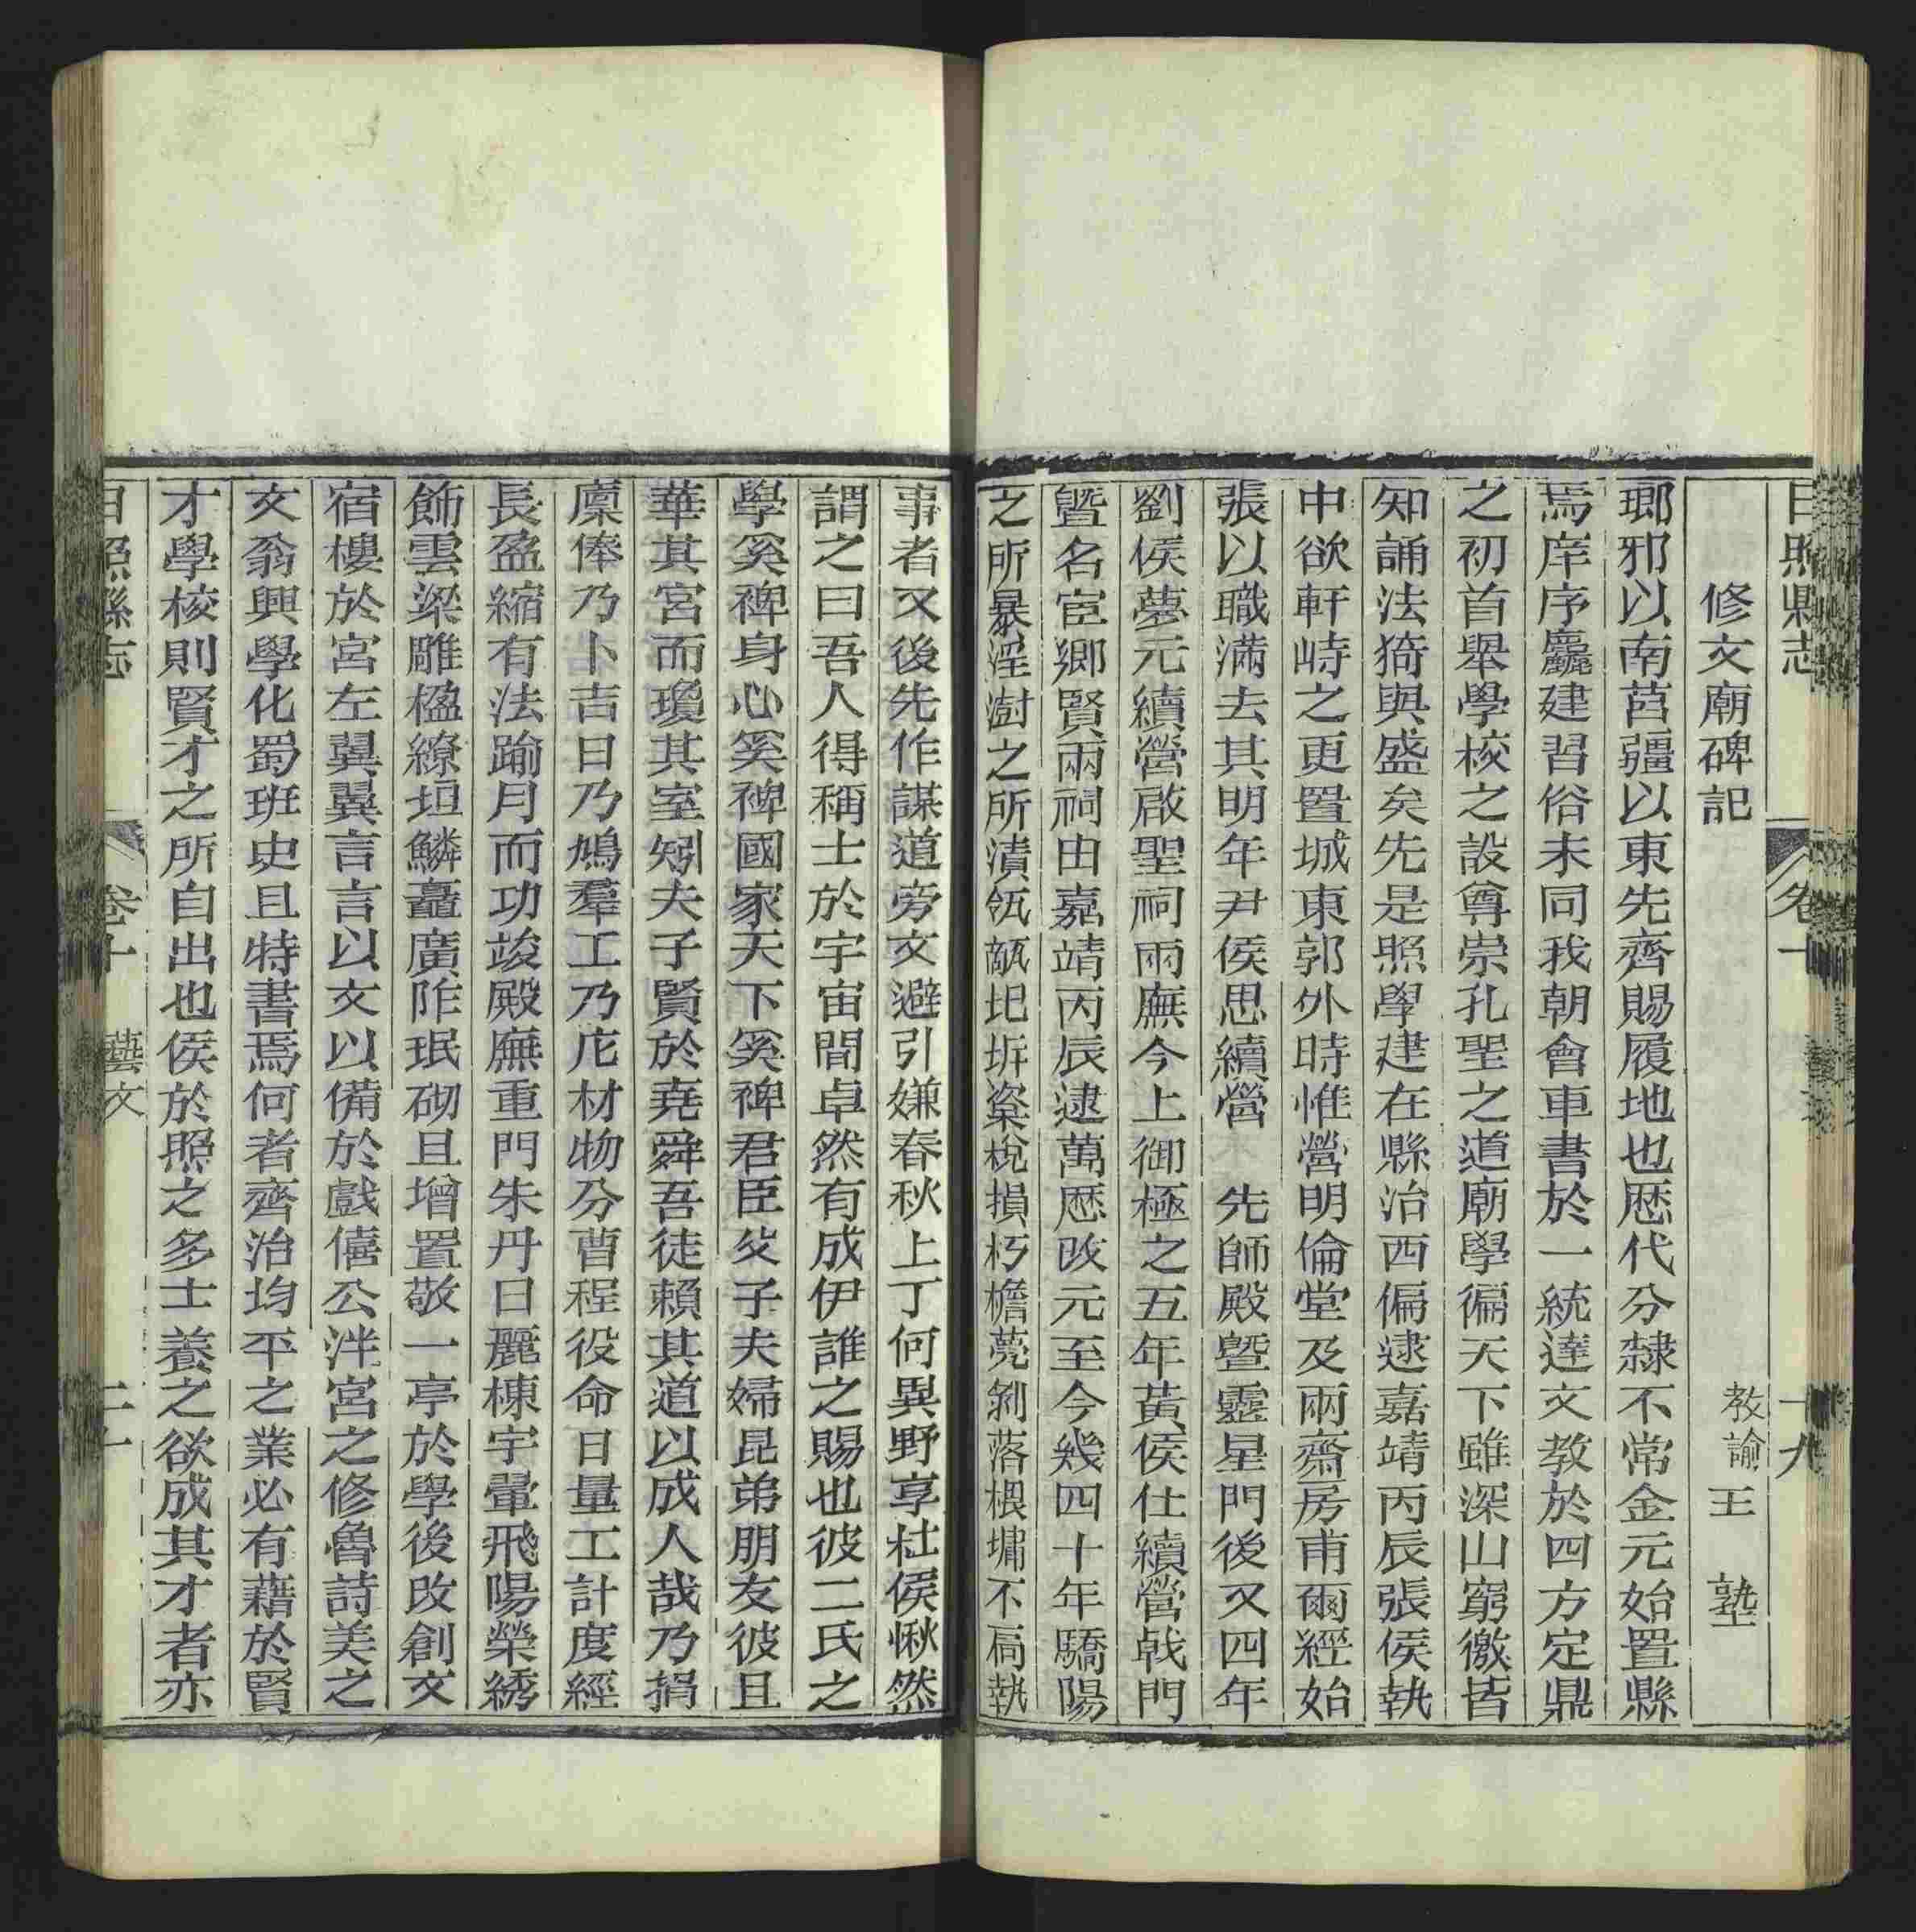 日照縣志 卷十 十九
修文廟碑記 教諭王 塾
瑯邪以南莒疆以東先齊賜履地也歷代分隸不常金元始置縣
焉庠序麤建習俗未同我朝會車書於一統達文教於四方定鼎
之初首舉學校之設尊崇孔聖之道廟學徧天下雖深山窮徼皆
知誦法猗與盛矣先是照學建在縣治西偏逮嘉靖丙辰張侯執
中欲軒峙之更置城東郭外時惟營明倫堂及兩齋房甫爾經始
張以職滿去其明年尹侯思續營 先師殿暨靈星門後又四年
劉侯夢元續營啟聖祠兩廡今上御極之五年黃侯仕續營戟門
暨名宦鄉賢兩祠由嘉靖丙辰逮萬歷改元至今幾四十年驕陽
之所暴淫澍之所漬瓴甋圯坼楶梲損朽檐甍剝落椳墉不扃執
事者又後先作謀道旁文避引嫌春秋上丁何異野享杜侯愀然
謂之曰吾人得稱士於宇宙間卓然有成伊誰之賜也彼二氏之
學奚裨身心奚裨國家天下奚裨君臣父子夫婦昆弟朋友彼且
華其宮而瓊其室矧夫子賢於堯舜吾徒賴其道以成人哉乃捐
廩俸乃卜吉日乃鳩羣工乃庀材物分曹程役命日量工計度經
長盈縮有法踰月而功竣殿廡重門朱丹日麗棟宇翬飛陽榮綉
飾雲梁雕楹繚垣鱗矗廣阼珉砌且增置敬一亭於學後改創文
宿樓於宮左翼翼言言以文以備於戲僖公泮宮之修魯詩美之
文翁興學化蜀班史且特書焉何者齊治均平之業必有藉於賢
才學校則賢才之所自出也侯於照之多士養之欲成其才者亦
日照縣志 卷十 藝文 二十